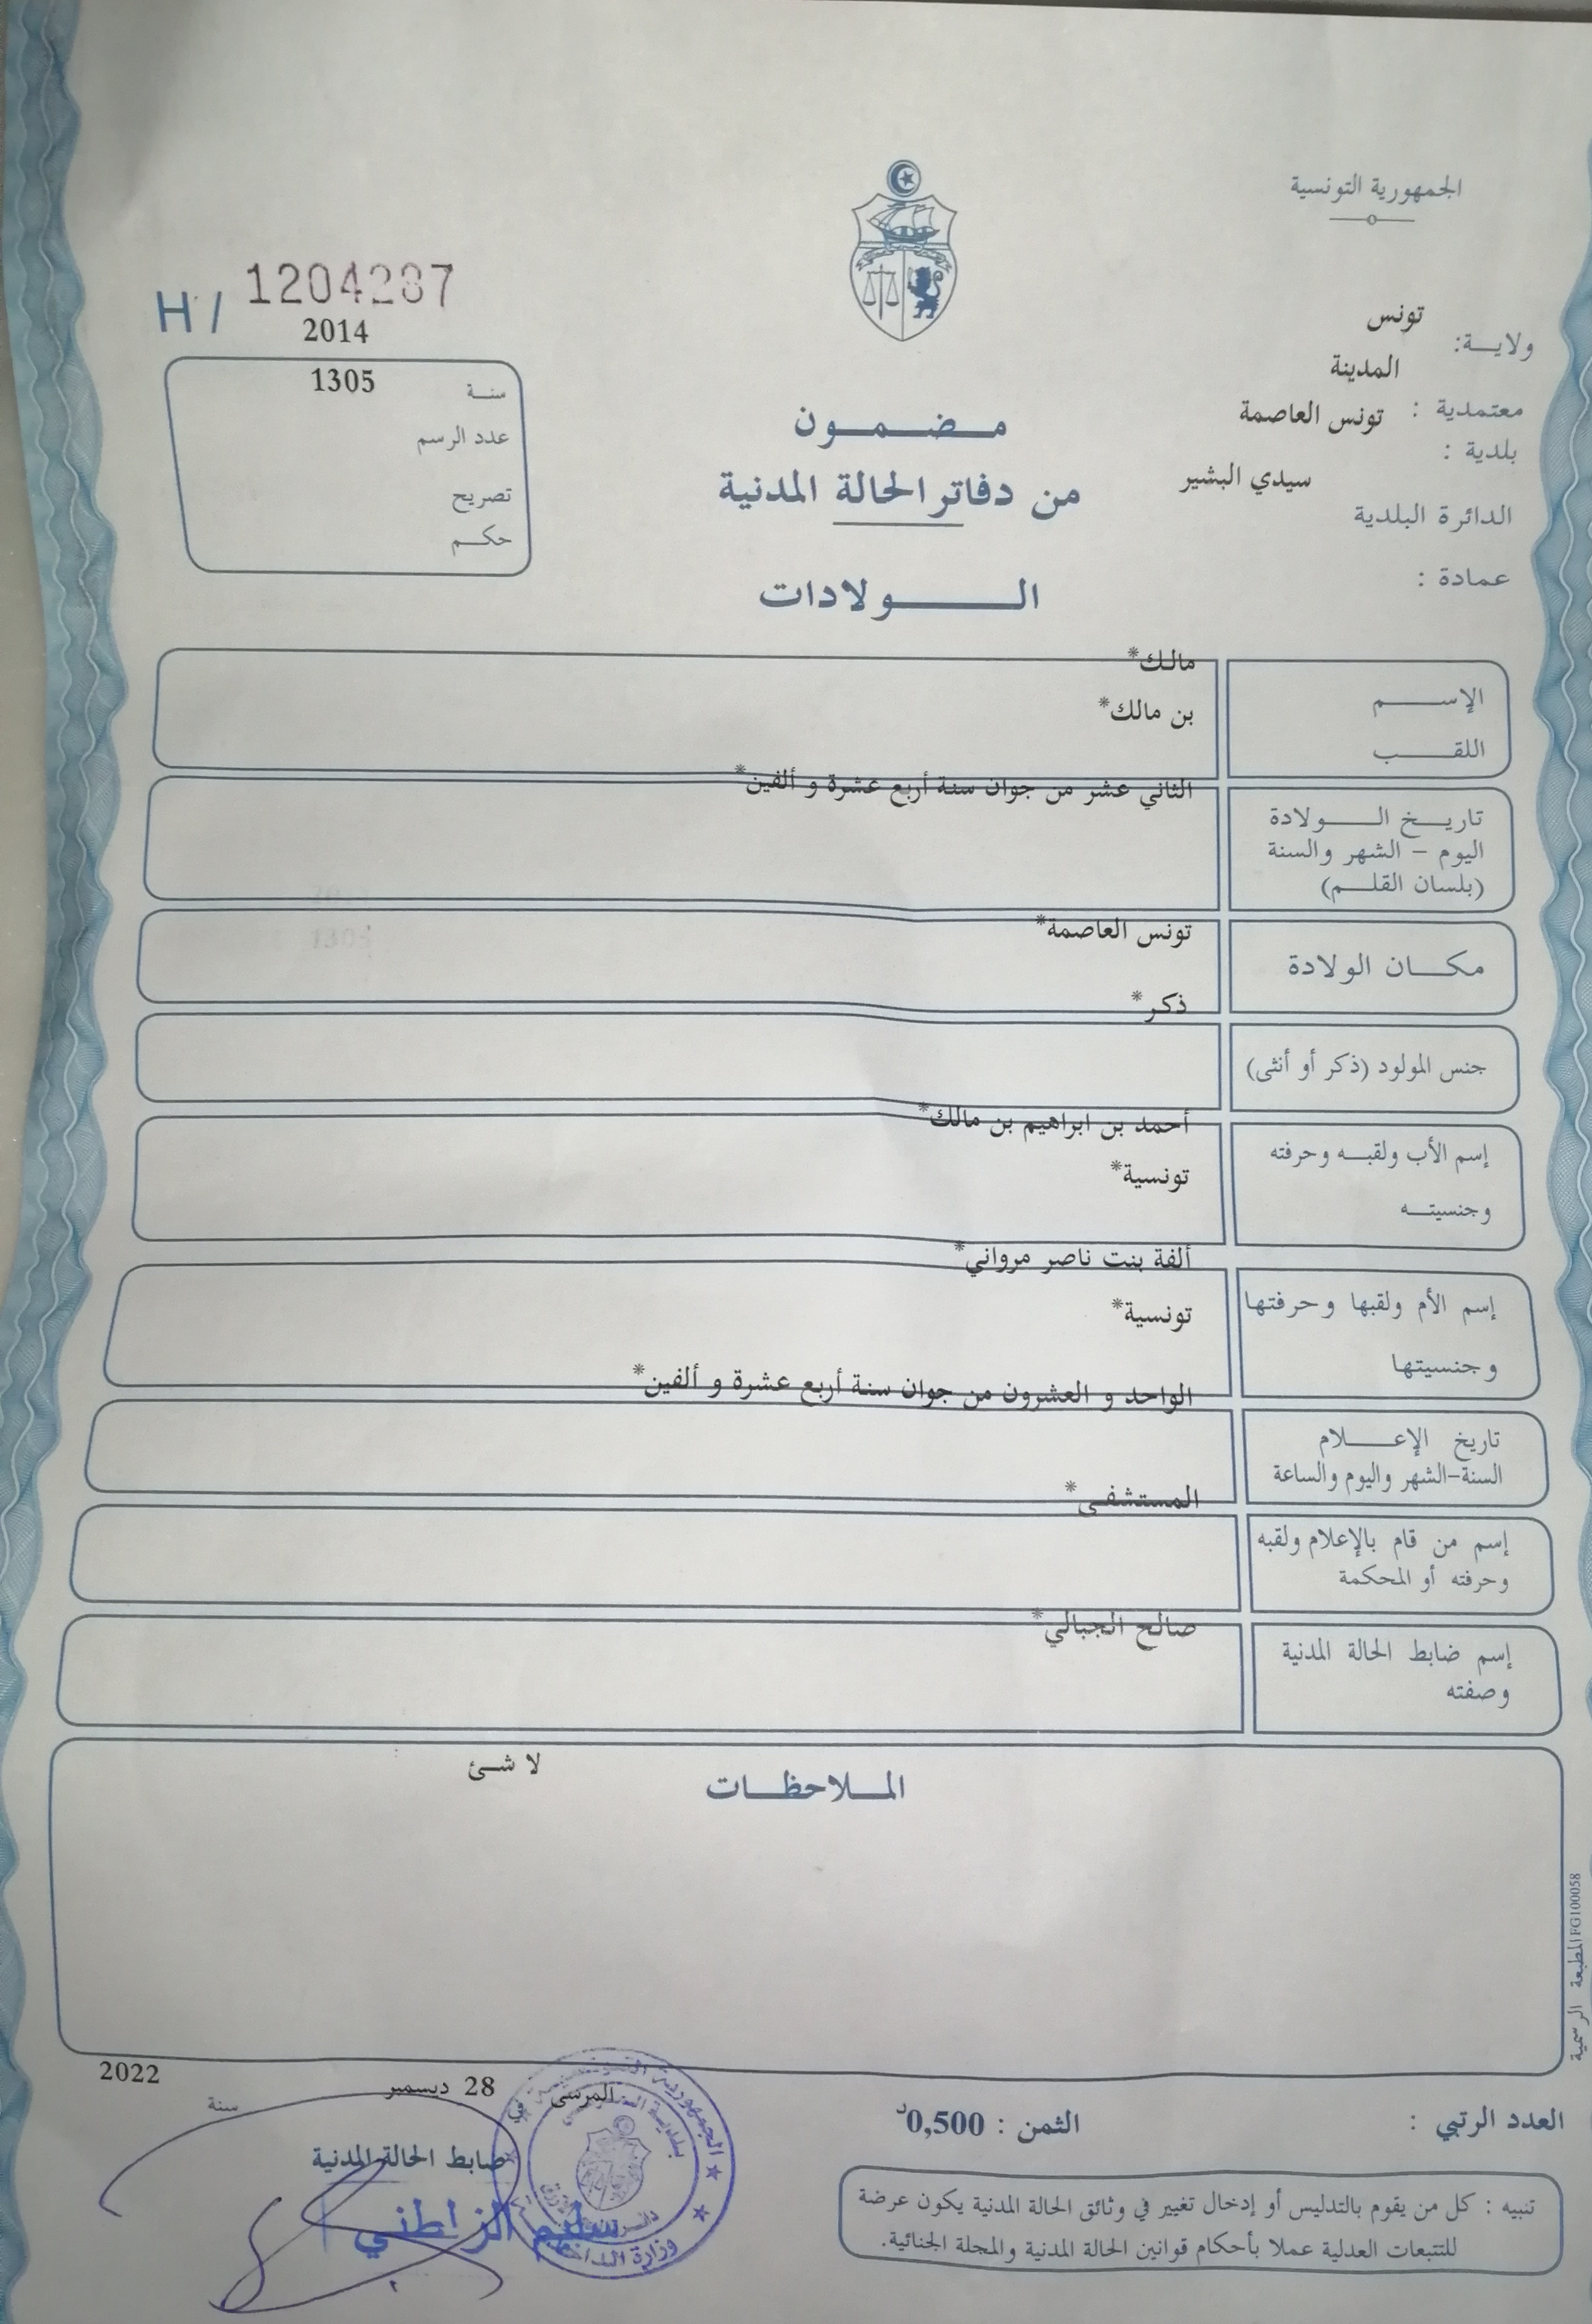 الجمهورية التونسية
ولاية: تونس
معتمدية : المدينة
بلدية : تونس العاصمة
الدائرة البلدية سيدي البشير
عمادة :
H / 1204287
2014
سنة 1305
عدد الرسم
تصريح
حكم
مضمون
من دفاتر الحالة المدنية
الولادات
الإسم مالك*
اللقب بن مالك*
تاريخ الولادة الثاني عشر من جوان سنة أربع عشرة و ألفين*
اليوم - الشهر والسنة
(بلسان القلم)
مكان الولادة تونس العاصمة*
جنس المولود (ذكر أو أنثى) ذكر*
إسم الأب ولقبه وحرفته أحمد بن ابراهيم بن مالك*
وجنسيته تونسية*
إسم الأم ولقبها وحرفتها ألفة بنت ناصر مرواني*
وجنسيتها تونسية*
تاريخ الإعلام الواحد و العشرون من جوان سنة أربع عشرة و ألفين*
السنة-الشهر واليوم والساعة
إسم من قام بالإعلام ولقبه المستشفى*
وحرفته أو المحكمة
إسم ضابط الحالة المدنية صالح الجبالي*
وصفته
الملاحظات لا شئ
المطبعة الرسمية FG100058
العدد الرتبي :
الثمن : 0,500د
في المرسى 28 ديسمبر سنة 2022
ضابط الحالة المدنية
سليم الزاطني
الجمهورية التونسية
وزارة الداخلية
تنبيه : كل من يقوم بالتدليس أو إدخال تغيير في وثائق الحالة المدنية يكون عرضة
للتتبعات العدلية عملا بأحكام قوانين الحالة المدنية والمجلة الجنائية.